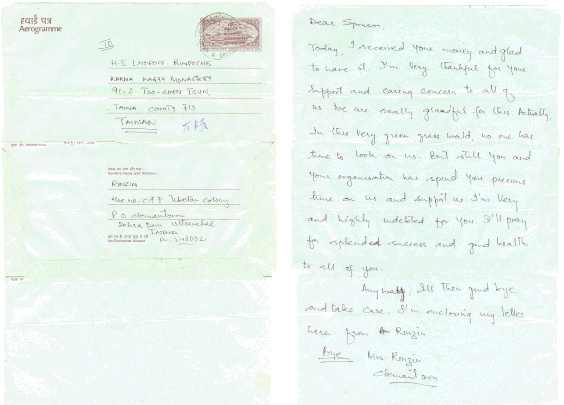 हवाई पत्र
Aerogramme
TO
H.E LHOPON RINPOCHE
KARMA KAGYU MONASTERY
TSO-CHEN TSUN,
COUNTY 713
TAIWAN
Sender's Name and Address:-
RENZIN
Tibetan colony
P.O clemantown
Dehra Dun Utteranchal
INDIA
248002
Dear Sponsor,
Today, I received your money and glad
to have it. I'm very thankful for your
support and caring concern to all of
us. We are really grateful for this. Actually,
In this very green grass world, no one has
time to look on us. But still you and
your organisation has spend you precious
time on us and support us I'm very
and highly indebted for you I'll pray
for splended success and good health
to all of you.
Anyway, Ill Then good bye
and take care. I'm enclosing my letter
here from Renzin
Bye Mrs Renzin
Clemantown